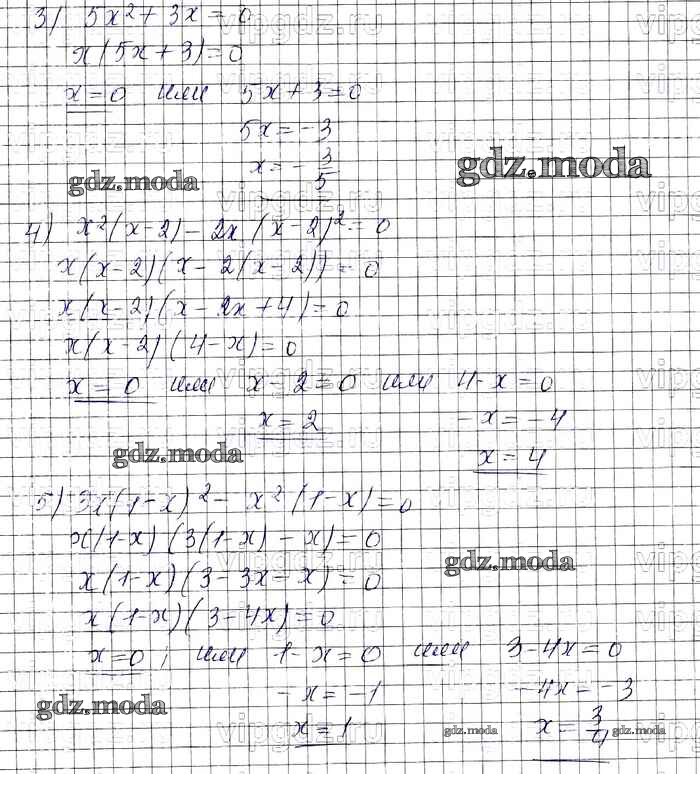 3) 5x² + 3x = 0
x(5x + 3) = 0
x = 0 или 5x + 3 = 0
5x = -3
x = - 3/5
gdz.moda
gdz.moda
4) x²(x-2) - 2x(x-2)² = 0
x(x-2)(x - 2(x-2)) = 0
x(x-2)(x - 2x + 4) = 0
x(x-2)(4-x) = 0
x = 0 или x - 2 = 0 или 4 - x = 0
x = 2 -x = -4
gdz.moda x = 4
5) 3x(1-x)² - x²(1-x) = 0
x(1-x)(3(1-x) - x) = 0
gdz.moda
x(1-x)(3 - 3x - x) = 0
x(1-x)(3 - 4x) = 0
x = 0; или 1 - x = 0 или 3 - 4x = 0
-x = -1 -4x = -3
gdz.moda
x = 1 gdz.moda x = 3/4 gdz.moda
vipgdz.ru